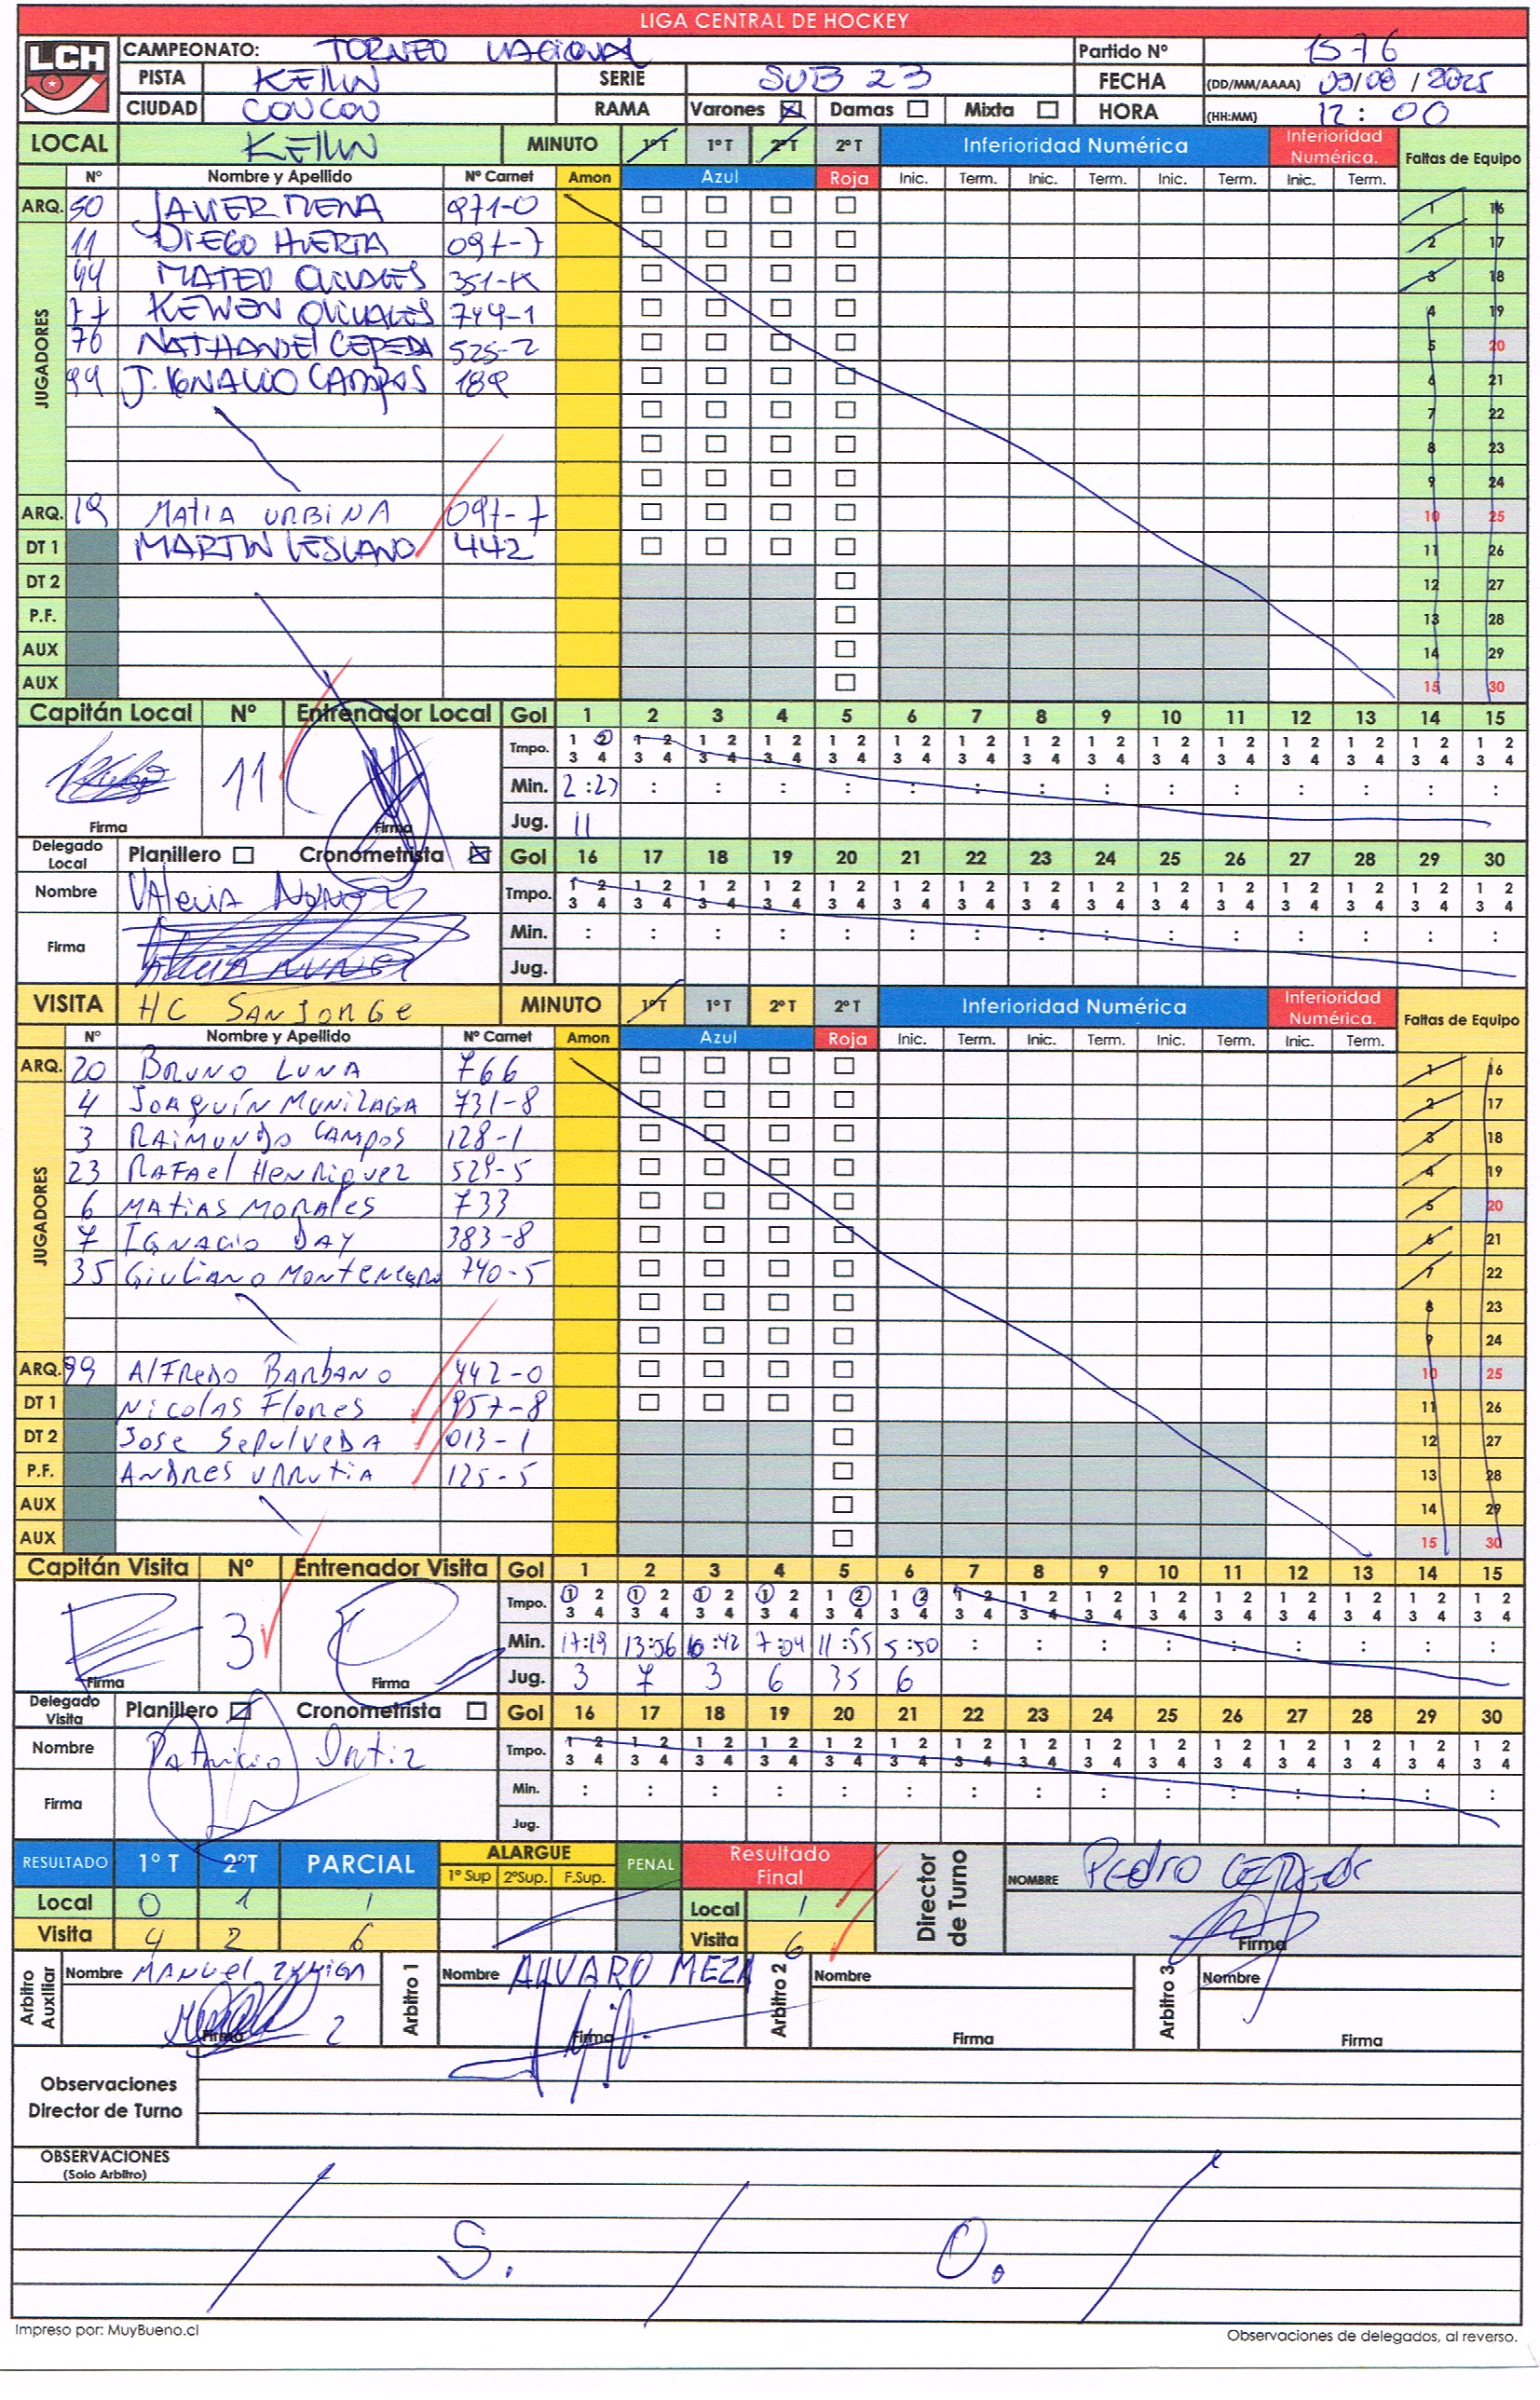 LIGA CENTRAL DE HOCKEY
LCH
CAMPEONATO: TORNEO NACIONAL Partido Nº 1576
PISTA KEIIN SERIE SUB 23 FECHA (DD/MM/AAAA) 03/08/2025
CIUDAD COUCOU RAMA Varones Damas Mixta HORA (HH:MM) 12:00
LOCAL KEIIN MINUTO 1º T 1º T 2º T 2º T Inferioridad Numérica Inferioridad Numérica. Faltas de Equipo
Nº Nombre y Apellido Nº Carnet Amon Azul Roja Inic. Term. Inic. Term. Inic. Term. Inic. Term.
ARQ. 50 JAVIER MENA 971-0 1 16
JUGADORES
11 DIEGO HUERTA 097-7 2 17
44 MATEO OLIVARES 351-K 3 18
77 KEWEN OLIVARES 744-1 4 19
76 NATHANIEL CEPEDA 525-2 5 20
99 J. IGNACIO CAMPOS 189 6 21
7 22
8 23
9 24
ARQ. 19 MATIA URBINA 097-7 10 25
DT 1 MARTIN LESCANO 442 11 26
DT 2 12 27
P.F. 13 28
AUX 14 29
AUX 15 30
Capitán Local Nº Entrenador Local Gol 1 2 3 4 5 6 7 8 9 10 11 12 13 14 15
Tmpo. 1 2 1 2 1 2 1 2 1 2 1 2 1 2 1 2 1 2 1 2 1 2 1 2 1 2 1 2 1 2
3 4 3 4 3 4 3 4 3 4 3 4 3 4 3 4 3 4 3 4 3 4 3 4 3 4 3 4 3 4
11 Min. 2:27 : : : : : : : : : : : : : :
Firma Firma Jug. 11
Delegado Local Planillero Cronometrista Gol 16 17 18 19 20 21 22 23 24 25 26 27 28 29 30
Nombre Valeria Nuñez Tmpo. 1 2 1 2 1 2 1 2 1 2 1 2 1 2 1 2 1 2 1 2 1 2 1 2 1 2 1 2 1 2
3 4 3 4 3 4 3 4 3 4 3 4 3 4 3 4 3 4 3 4 3 4 3 4 3 4 3 4 3 4
Firma Min. : : : : : : : : : : : : : : :
Jug.
VISITA HC SAN JORGE MINUTO 1º T 1º T 2º T 2º T Inferioridad Numérica Inferioridad Numérica. Faltas de Equipo
Nº Nombre y Apellido Nº Carnet Amon Azul Roja Inic. Term. Inic. Term. Inic. Term. Inic. Term.
ARQ. 20 BRUNO LUNA 766 1 16
JUGADORES
4 JOAQUÍN MUNIZAGA 731-8 2 17
3 RAIMUNDO CAMPOS 128-1 3 18
23 RAFAEL HENRIQUEZ 529-5 4 19
6 MATIAS MORALES 733 5 20
7 IGNACIO DAY 383-8 6 21
35 GIULIANO MONTENEGRO 740-5 7 22
8 23
9 24
ARQ. 99 ALFREDO BARBANO 442-0 10 25
DT 1 NICOLAS FLORES 957-8 11 26
DT 2 JOSE SEPULVEDA 013-1 12 27
P.F. ANDRES URRUTIA 125-5 13 28
AUX 14 29
AUX 15 30
Capitán Visita Nº Entrenador Visita Gol 1 2 3 4 5 6 7 8 9 10 11 12 13 14 15
Tmpo. 1 2 1 2 1 2 1 2 1 2 1 2 1 2 1 2 1 2 1 2 1 2 1 2 1 2 1 2 1 2
3 4 3 4 3 4 3 4 3 4 3 4 3 4 3 4 3 4 3 4 3 4 3 4 3 4 3 4 3 4
3 Min. 17:19 13:56 10:42 7:04 11:55 5:50 : : : : : : : : :
Firma Firma Jug. 3 7 3 6 35 6
Delegado Visita Planillero Cronometrista Gol 16 17 18 19 20 21 22 23 24 25 26 27 28 29 30
Nombre Patricio Ortiz Tmpo. 1 2 1 2 1 2 1 2 1 2 1 2 1 2 1 2 1 2 1 2 1 2 1 2 1 2 1 2 1 2
3 4 3 4 3 4 3 4 3 4 3 4 3 4 3 4 3 4 3 4 3 4 3 4 3 4 3 4 3 4
Firma Min. : : : : : : : : : : : : : : :
Jug.
RESULTADO 1º T 2ºT PARCIAL ALARGUE 1º Sup 2ºSup. F.Sup. PENAL Resultado Final Director de Turno NOMBRE PEDRO
Local 0 1 1 Local 1
Visita 4 2 6 Visita 6 Firma
Arbitro Auxiliar Nombre MANUEL ZUÑIGA Arbitro 1 Nombre ALVARO MEZA Arbitro 2 Nombre Arbitro 3 Nombre
Firma Firma Firma Firma
Observaciones Director de Turno
OBSERVACIONES
(Solo Arbitro)
S. O.
Impreso por: MuyBueno.cl Observaciones de delegados, al reverso.